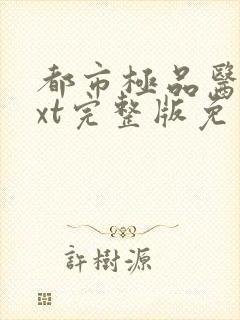 都市極品醫
xt完整版免
許樹源